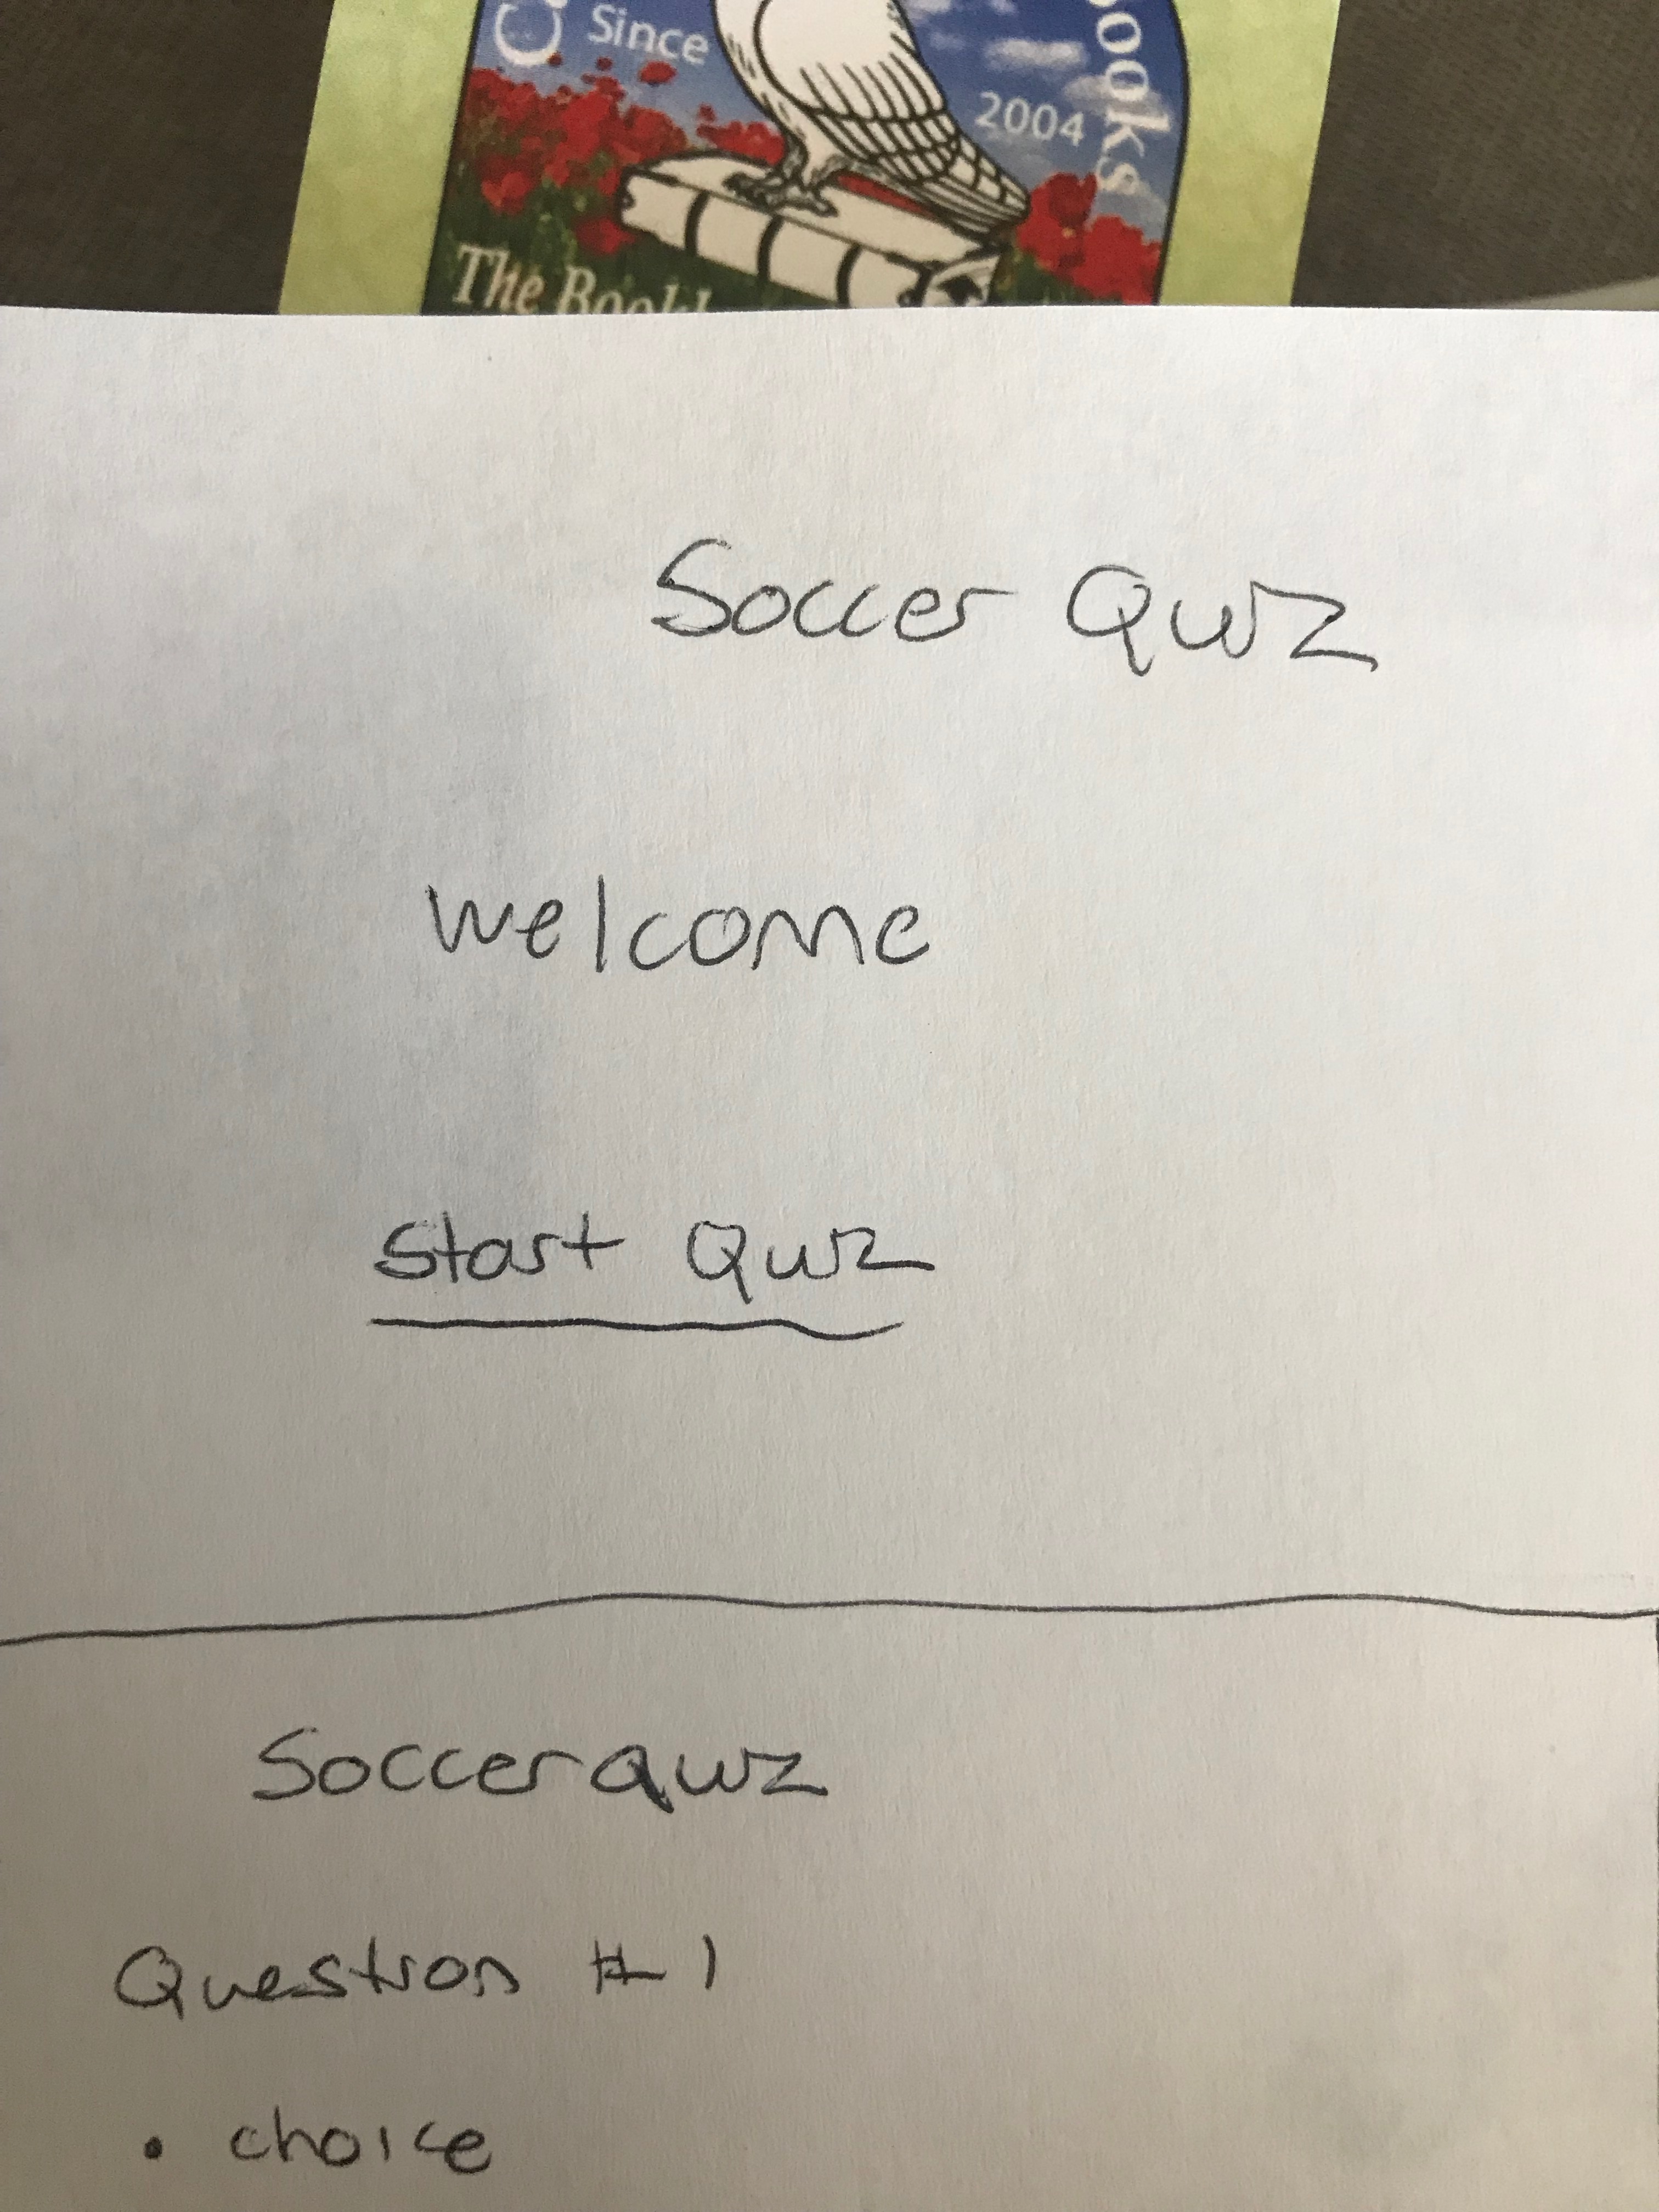 Since
2004
ooks
The Book
Soccer Quiz
Welcome
Start Quiz
Soccer Quiz
Question #1
• choice